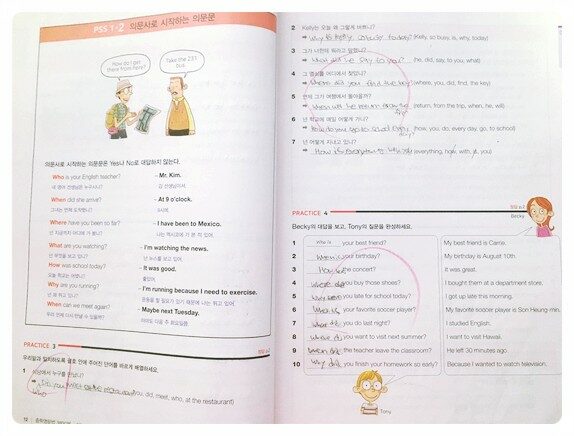 PSS 1-2 의문사로 시작하는 의문문
How do I get there from here?
Take the 231 bus.
의문사로 시작하는 의문문은 Yes나 No로 대답하지 않는다.
Who is your English teacher? - Mr. Kim.
네 영어 선생님은 누구시니? 김 선생님이셔.
When did she arrive? - At 9 o'clock.
그녀는 언제 도착했니? 9시에.
Where have you been so far? - I have been to Mexico.
What are you watching? - I'm watching the news.
넌 무엇을 보고 있니? 난 뉴스를 보고 있어.
How was school today? - It was good.
오늘 학교는 어땠니? 좋았어.
Why are you running? - I'm running because I need to exercise.
넌 왜 뛰고 있니?
When can we meet again? - Maybe next Tuesday.
우리 언제 다시 만날 수 있을까? 아마도 다음 주 화요일쯤
PRACTICE 3
우리말과 일치하도록 괄호 안에 주어진 단어를 바르게 배열하세요.
1 식당에서 누구를 만났니?
(you, did, meet, who, at the restaurant)
who
12
2 Kelly는 오늘 왜 그렇게 바쁘니?
→ Why is Kelly so busy today? (Kelly, so busy, is, why, today)
3 그가 너한테 뭐라고 말했니?
→ What did he say to you? (he, did, say, to you, what)
4 그 열쇠를 어디에서 찾았니?
→ Where did you find the key? (where, you, did, find, the key)
5 언제 그가 여행에서 돌아올까?
→ When will he return from the trip (return, from the trip, when, he, will)
6 넌 학교에 매일 어떻게 가니?
→ How do you go to school every day? (how, you, do, every day, go, to school)
7 넌 어떻게 지내고 있니?
→ How is everything with you (everything, how, with, is, you)
PRACTICE 4
Becky
Becky의 대답을 보고, Tony의 질문을 완성하세요.
1 Who is your best friend? My best friend is Carrie.
2 When is your birthday? My birthday is August 10th.
3 How was the concert? It was great.
4 Where did you buy those shoes? I bought them at a department store.
5 Why were you late for school today? I got up late this morning.
6 Who is your favorite soccer player? My favorite soccer player is Son Heung-min.
7 What did you do last night? I studied English.
8 Where do you want to visit next summer? I want to visit Hawaii.
9 When did the teacher leave the classroom? He left 30 minutes ago
10 Why did you finish your homework so early? Because I wanted to watch television.
Tony